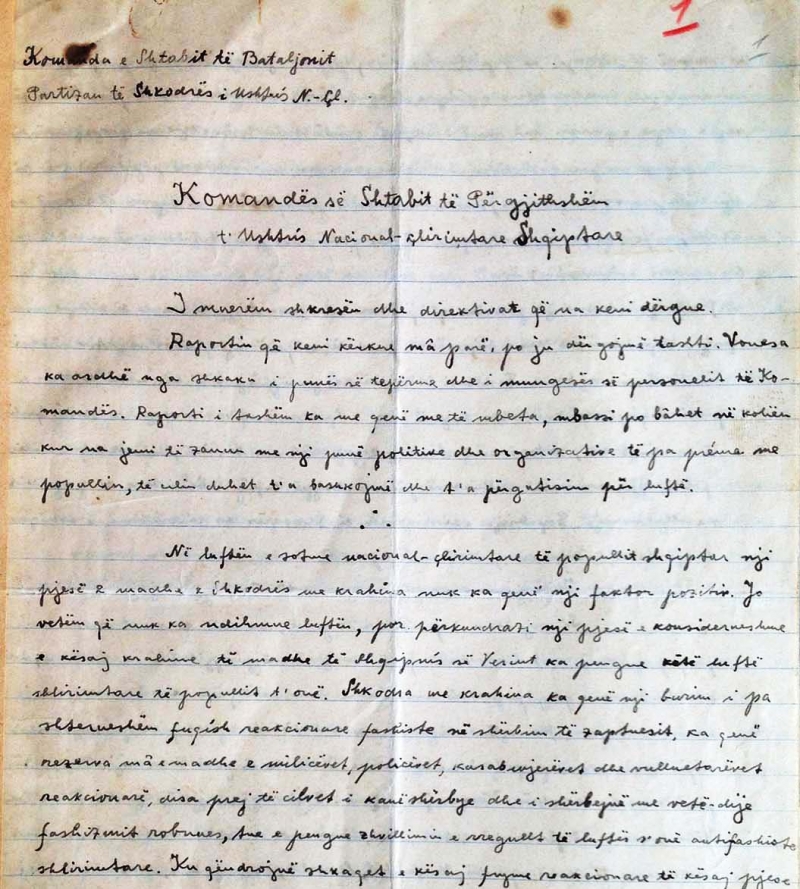 1
1
Komanda e Shtabit të Bataljonit
Partizan të Shkodrës i Ushtris N.-Çl.
Komandës së Shtabit të Përgjithshëm
t' Ushtris Nacional-çlirimtare Shqiptare
I muerëm shkresën dhe direktivat që na keni dërgue.
Raportin që keni kërkue mâ parë, po ju dërgojmë tashti. Vonesa
ka ardhë nga shkaku i punës së tepërme dhe i mungesës së personelit të Ko-
mandës. Raporti i tashëm ka me qenë me të mbeta, mbassi po bâhet në kohën
kur na jemi të zanun me nji punë politike dhe organizative të pa préme me
popullin, të cilin duhet t'a bashkojmë dhe t'a përgatisim për luftë.
Në luftën e sotme nacional-çlirimtare të popullit shqiptar nji
pjesë e madhe e Shkodrës me krahina nuk ka qenë nji faktor pozitiv. Jo
vetëm që nuk ka ndihmue luftën, por përkundrazi nji pjesë e konsiderueshme
e kësaj krahine të madhe të Shqipnis së Veriut ka pengue këtë luftë
shlirimtare të popullit t'onë. Shkodra me krahina ka qenë nji burim i pa
shterueshëm fuqish reakcionare fashiste në shërbim të zaptuesit, ka qenë
rezerva mâ e madhe e milicëvet, policëvet, karabinjerëvet dhe vullnetarëvet
reakcionarë, disa prej të cilvet i kanë shërbye dhe i shërbejnë me vetë-dije
fashizmit robnues, tue e pengue zhvillimin e rregullt të luftës s'onë antifashiste
shlirimtare. Ku qëndrojnë shkaget e kësaj fryme reakcionare të kësaj pjese